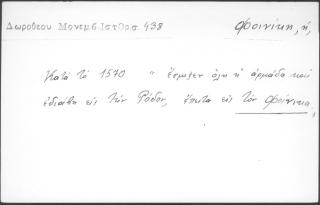 Δωροθεου Μονεμβ. Ιστορ σ 438
Φοινίκη, ἡ,
Κατά τό 1570 " ἔσμιξεν ὅλη ἡ ἀρμάδα καί
ἐδιάβη εἰς τήν Ρόδον, ἔπειτα εἰς τόν Φοίνικα,